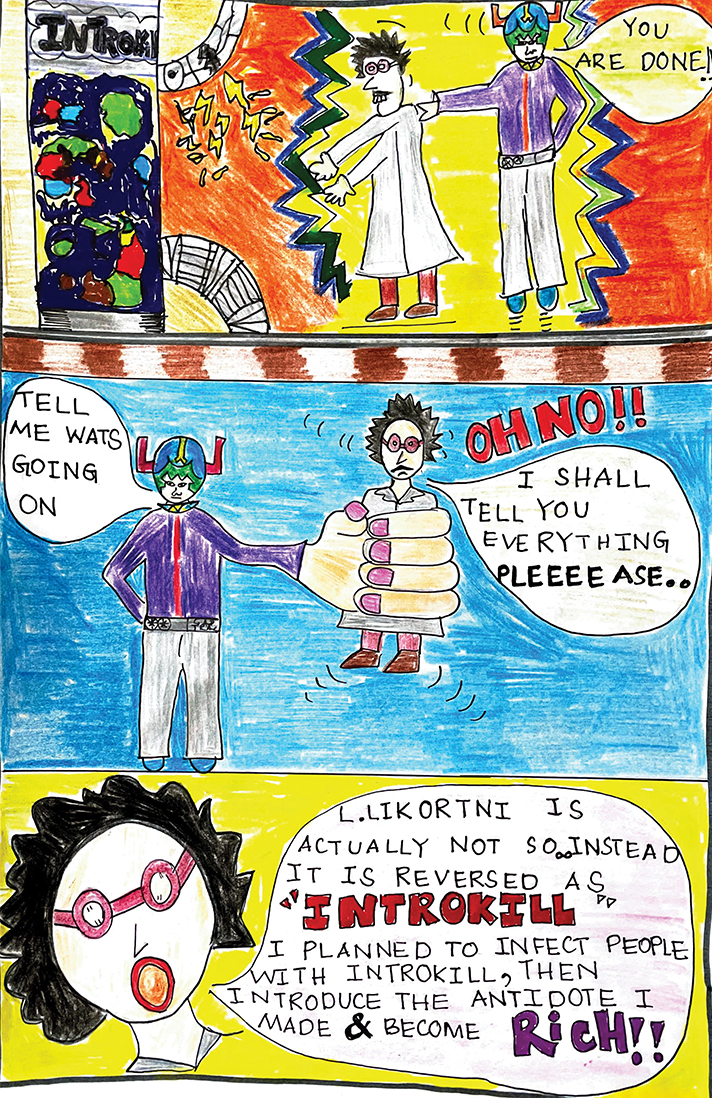 INTROKI
YOU
ARE DONE!!
TELL
ME WATS
GOING
ON
OH NO!!
I SHALL
TELL YOU
EVERYTHING
PLEEEE ASE..
L.LIKORTNI IS
ACTUALLY NOT SO..INSTEAD
IT IS REVERSED AS
"INTROKILL"
I PLANNED TO INFECT PEOPLE
WITH INTROKILL, THEN
INTRODUCE THE ANTIDOTE I
MADE & BECOME RiCH!!